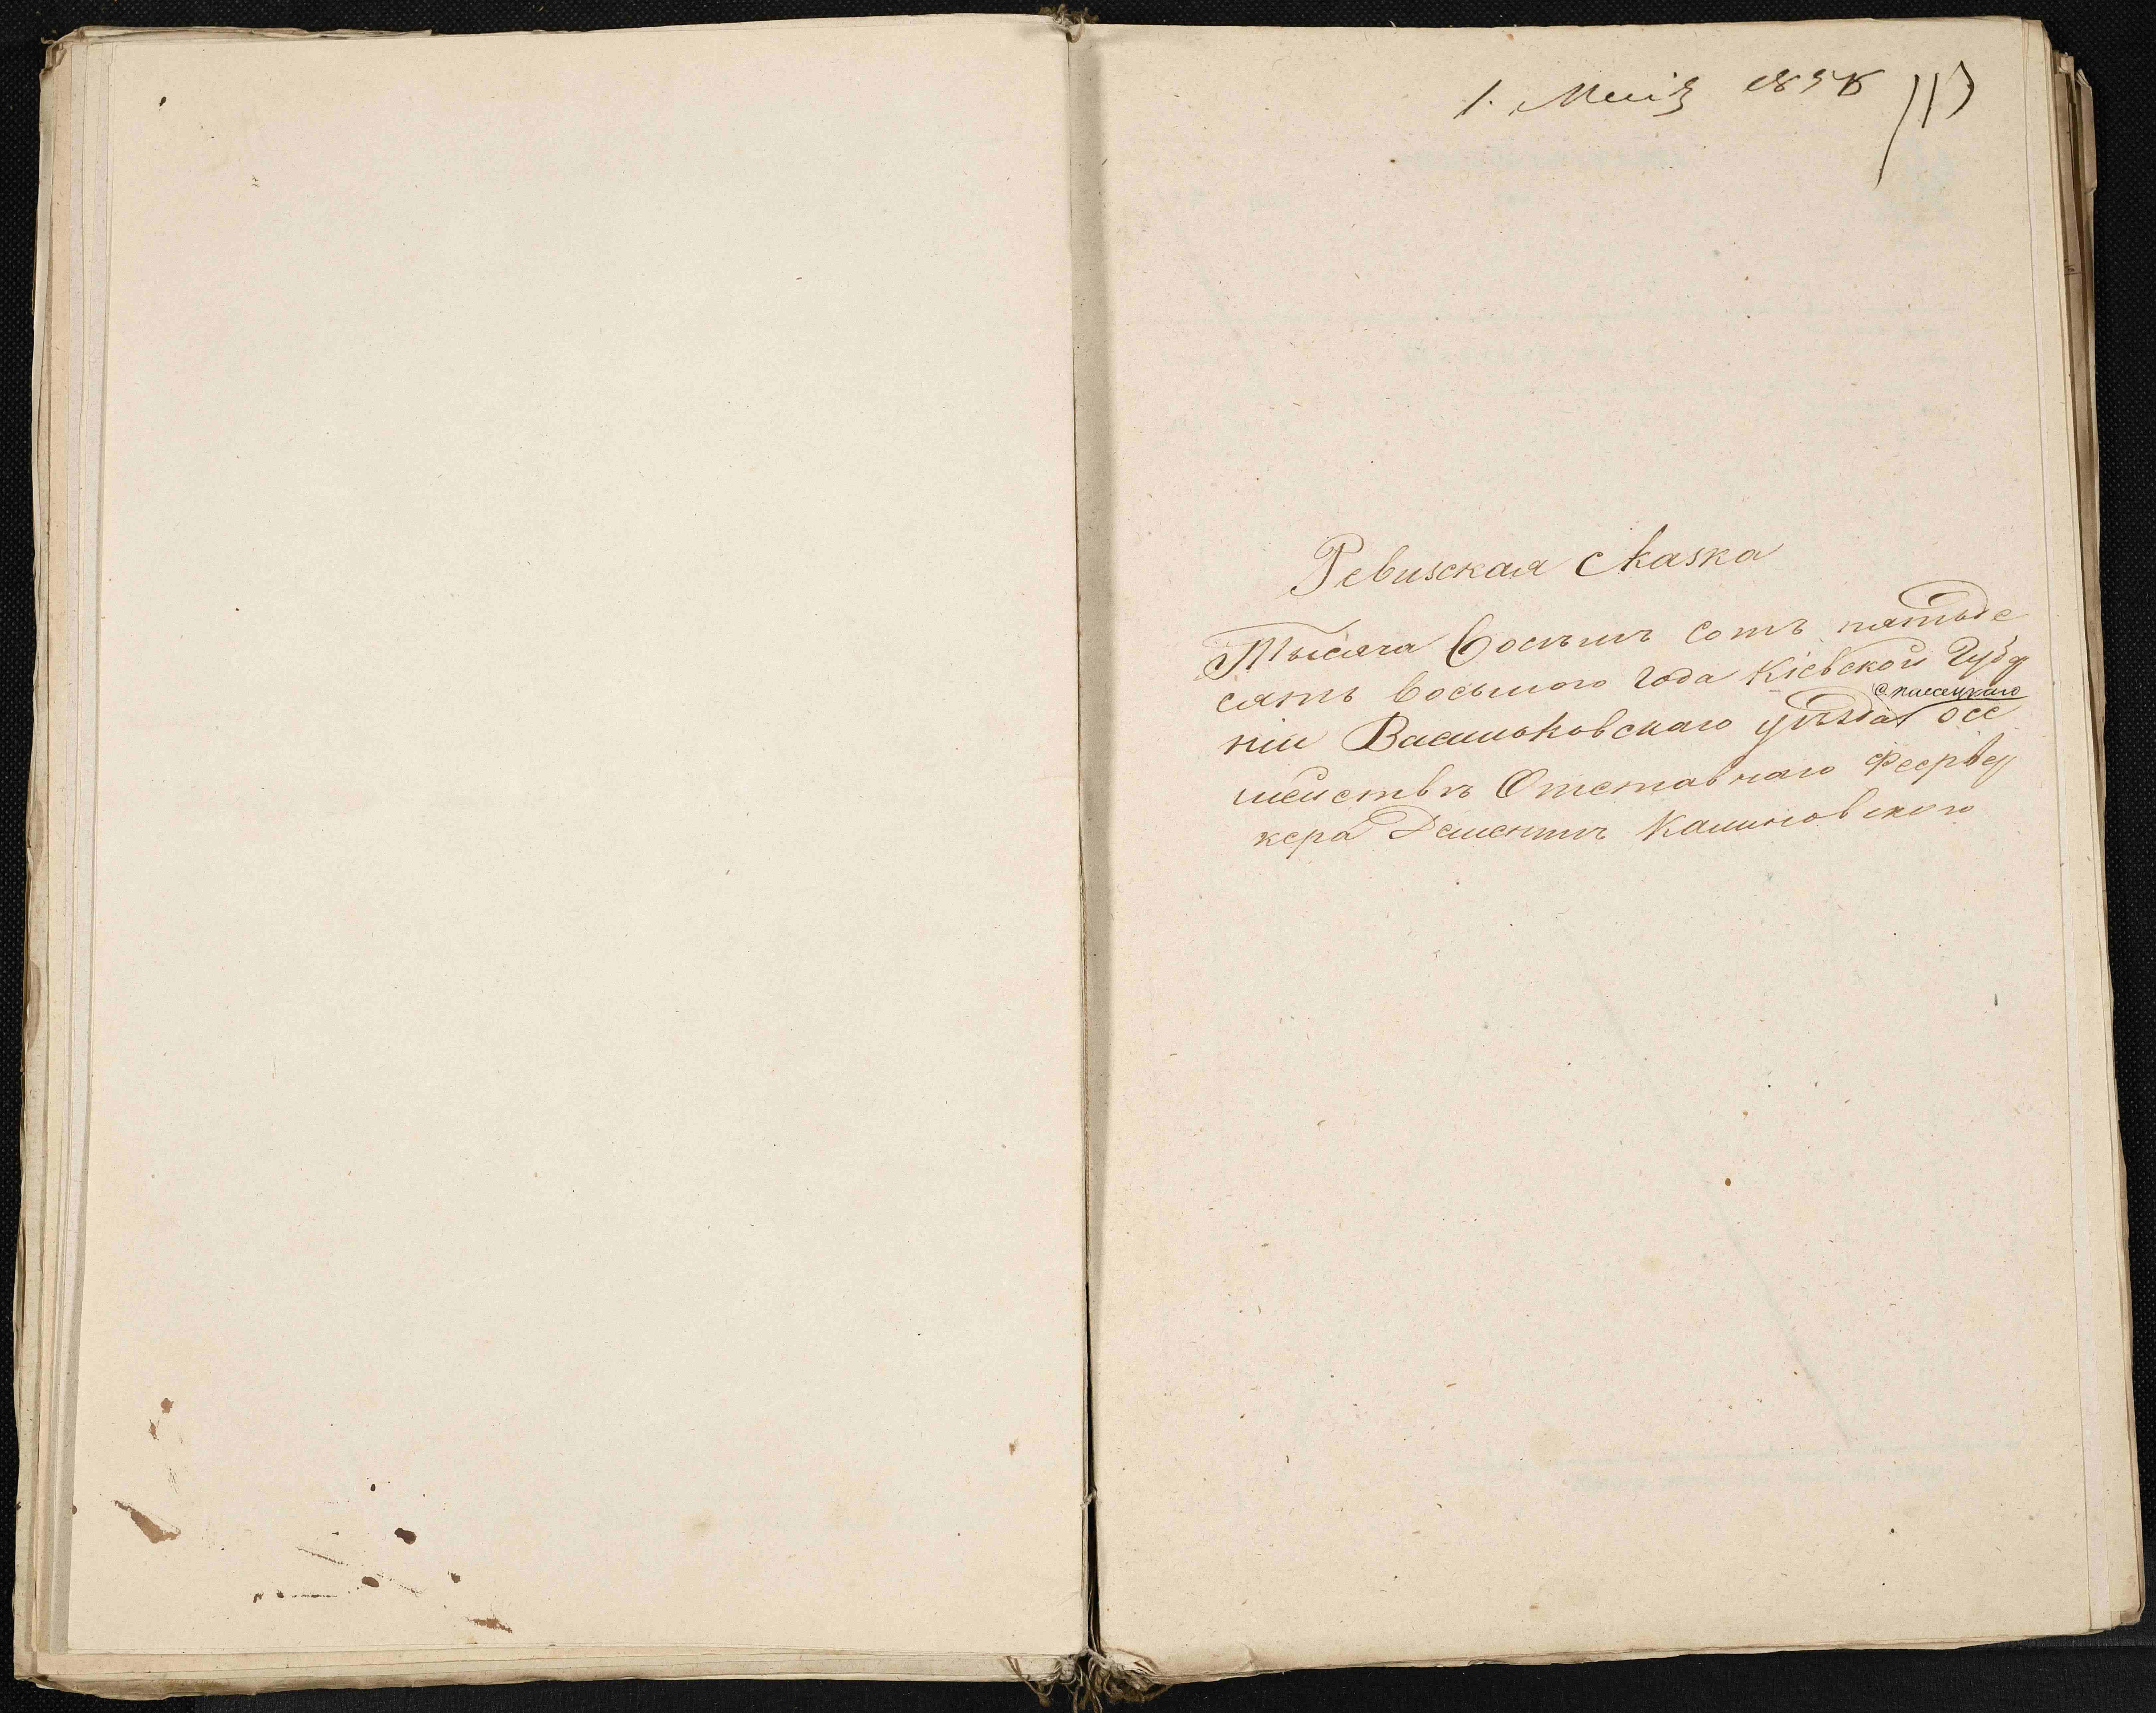 1. Маія 1858
117
Ревизская сказка
Тысяча восъмъ сотъ пятьде
сятъ восьмого года Кіевской Губер
ніи Васильковскаго уѣзда о се
мействѣ Отставнаго Феервер
кера Дементия Калиновского